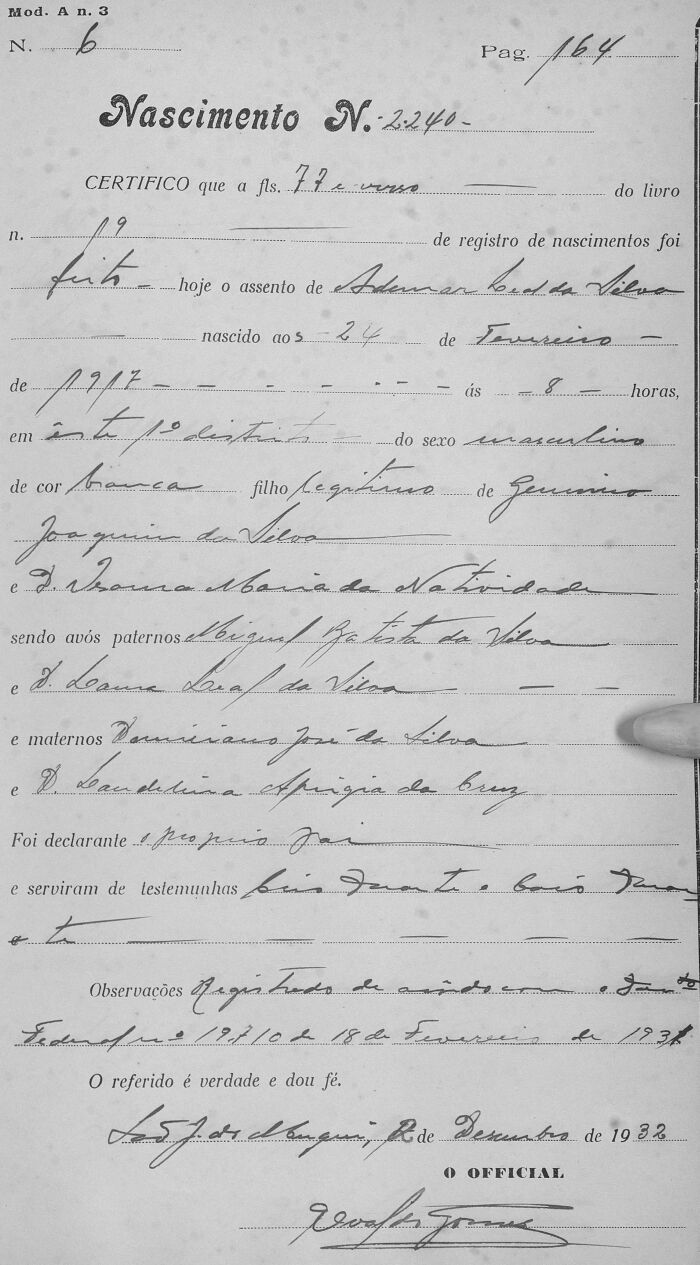 Mod. A n. 3
N. 6 Pag. 164
Nascimento N. 2.240
CERTIFICO que a fls. 77 e verso do livro
n. 19 de registro de nascimentos foi
feito hoje o assento de Ademar Leal da Silva
nascido aos 24 de Fevereiro
de 1917 ás 8 horas,
em êste 1º distrito do sexo masculino
de cor branca filho legitimo de Geminio
Joaquim da Silva
e D. Isaura Maria da Natividade
sendo avós paternos Miguel Batista da Silva
e D. Laura Leal da Silva
e maternos Domiciano José da Silva
e D. Laudelina Aprigia da Cruz
Foi declarante o proprio pai
e serviram de testemunhas Duarte e Duar
te
Observações Registrado de acôrdo com o
Federal nº 19.710 de 18 de Fevereiro de 1931
O referido é verdade e dou fé.
São J. do Muqui, de Dezembro de 1932
O OFFICIAL
Gomes